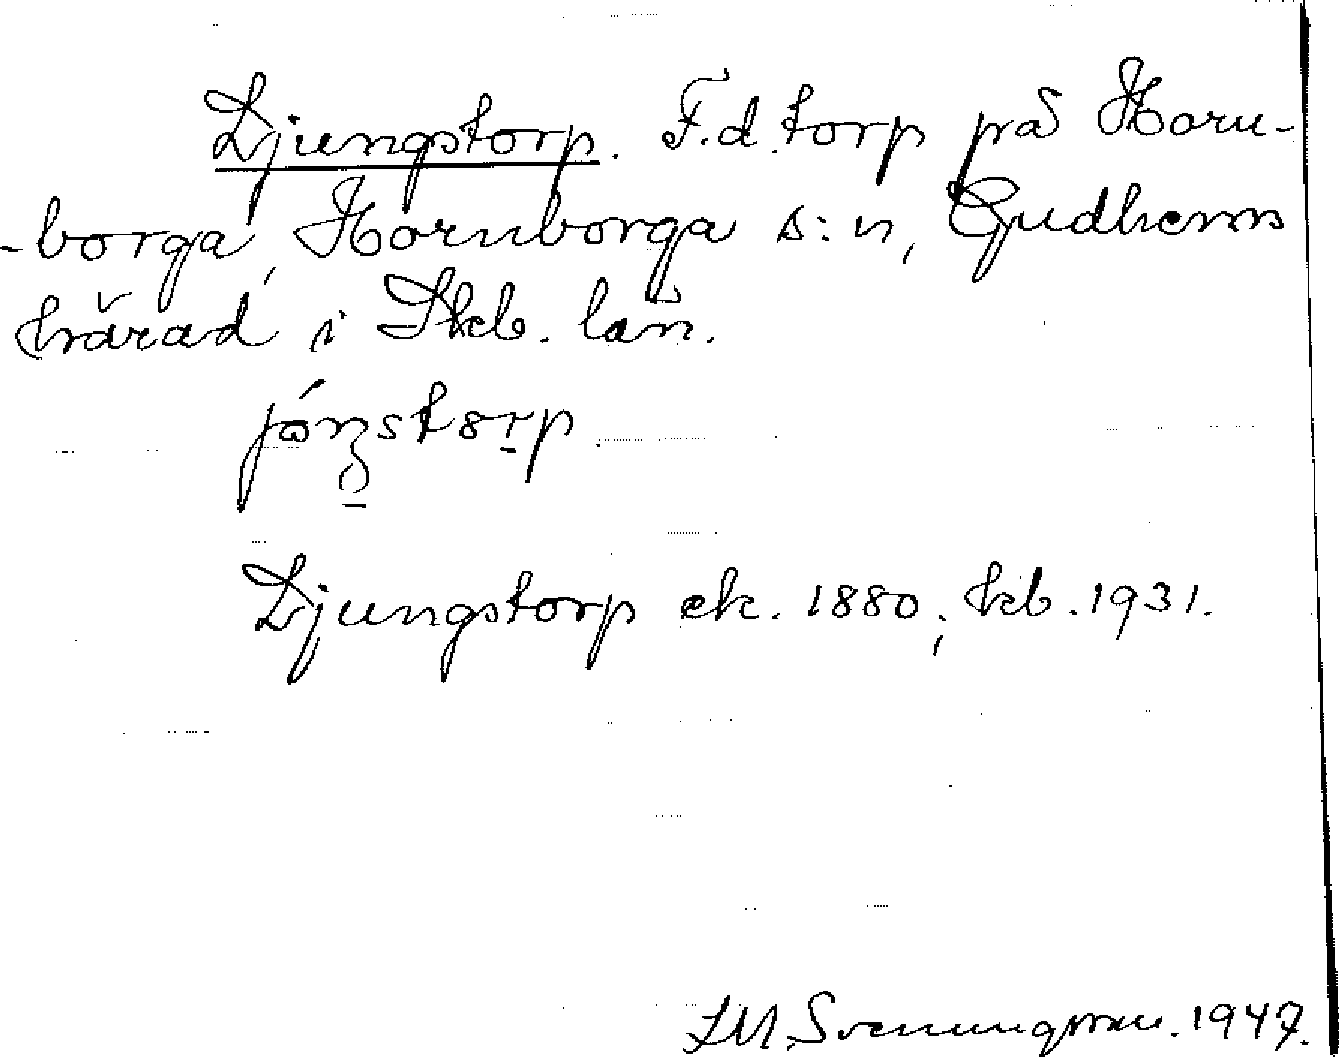 Ljungstorp. F.d. torp på Horn-
-borga, Hornborga s:n, Gudhems
härad i Skb. län.
Ljungstorp ek. 1880; kb. 1931.
Svenungsson. 1947.